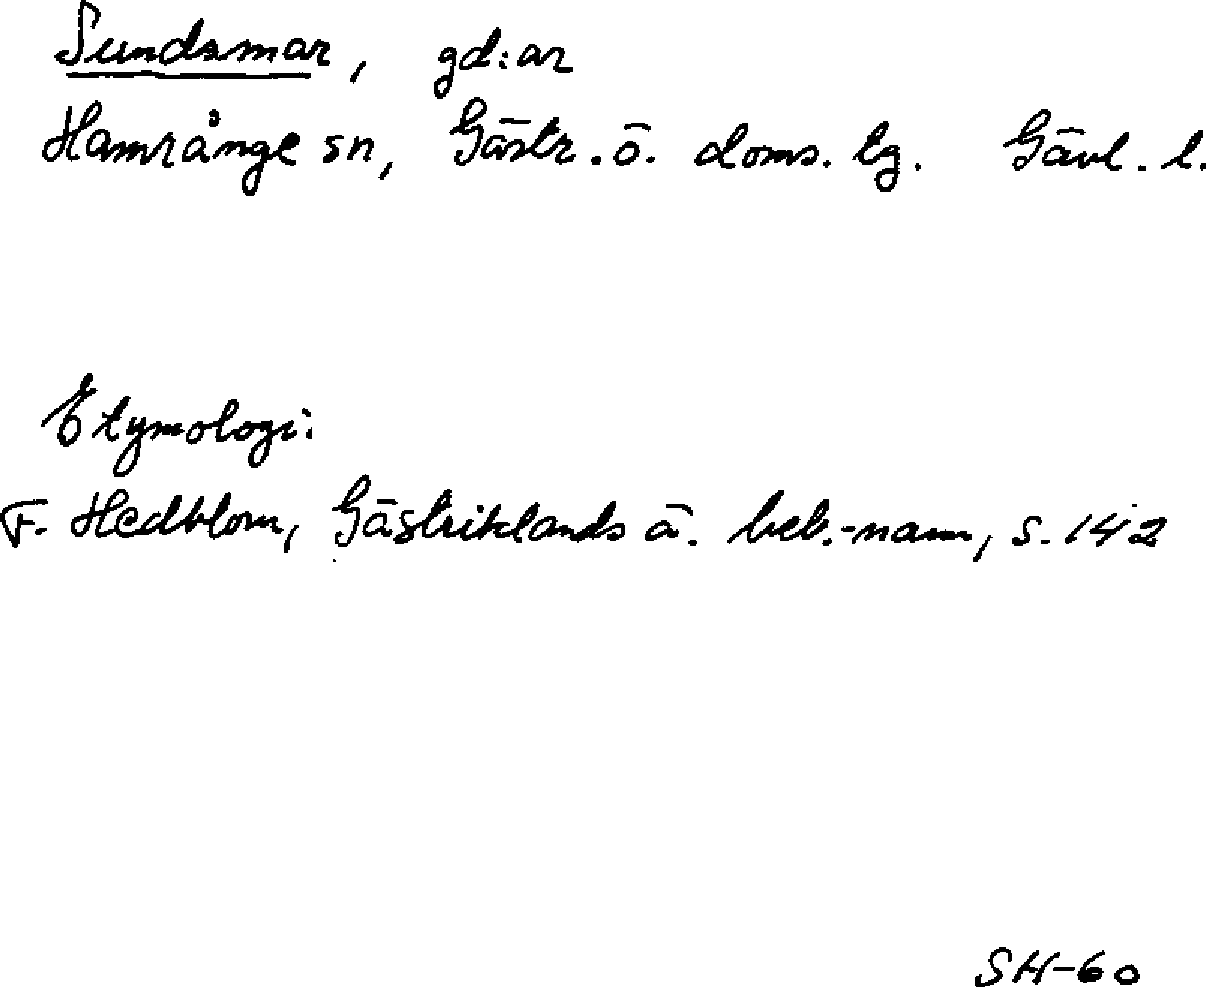 Sundsmar, gd:ar
Hamrånge sn, Gästr. ö. doms. tg. Gävl. l.
Etymologi:
F. Hedblom, Gästriklands ä. beb.-namn, s. 142
SH-60